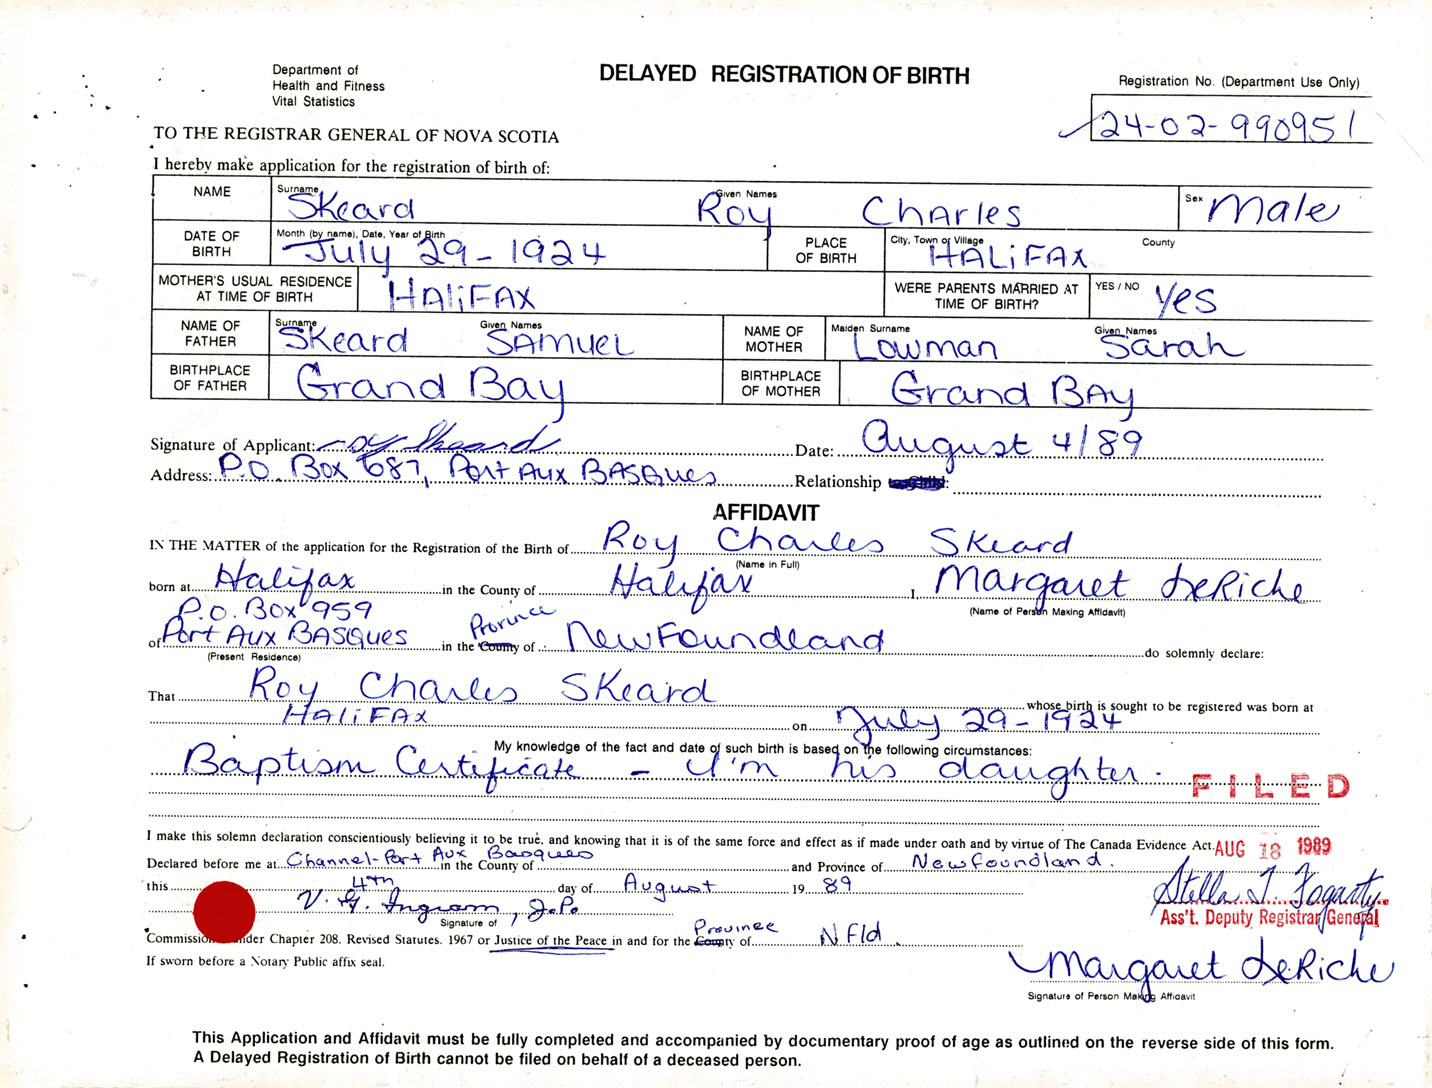 Department of
Health and Fitness
Vital Statistics
DELAYED REGISTRATION OF BIRTH
Registration No. (Department Use Only)
24-02-990951
TO THE REGISTRAR GENERAL OF NOVA SCOTIA
I hereby make application for the registration of birth of:
NAME Surname Skeard Given Names Roy Charles Sex Male
DATE OF BIRTH Month (by name), Date, Year of Birth July 29-1924 PLACE OF BIRTH City, Town or Village HALiFAX County
MOTHER'S USUAL RESIDENCE AT TIME OF BIRTH HALiFAX WERE PARENTS MARRIED AT TIME OF BIRTH? YES / NO Yes
NAME OF FATHER Surname Skeard Given Names SAMUEL NAME OF MOTHER Maiden Surname Lowman Given Names Sarah
BIRTHPLACE OF FATHER Grand Bay BIRTHPLACE OF MOTHER Grand BAy
Signature of Applicant: Roy Skeard Date: August 4/89
Address: P.O. Box 687, Port Aux BASQues Relationship
AFFIDAVIT
IN THE MATTER of the application for the Registration of the Birth of Roy Charles Skeard
(Name in Full)
born at Halifax in the County of Halifax I, Margaret LeRiche
(Name of Person Making Affidavit)
P.O. Box 959
of Port Aux BASQues in the County Province of NewFoundland do solemnly declare:
(Present Residence)
That Roy Charles Skeard whose birth is sought to be registered was born at
HALiFAX on July 29-1924
My knowledge of the fact and date of such birth is based on the following circumstances:
Baptism Certificate - I'm his daughter.
FILED
I make this solemn declaration conscientiously believing it to be true, and knowing that it is of the same force and effect as if made under oath and by virtue of The Canada Evidence Act.
AUG 18 1989
Declared before me at Channel-Port Aux Basques in the County of and Province of Newfoundland.
this 4th day of August 19 89
Stella T. Fogarty
Ass't. Deputy Registrar General
V. G. Ingram, J.P.
Signature of
Commission under Chapter 208. Revised Statutes. 1967 or Justice of the Peace in and for the County Province of NFld.
If sworn before a Notary Public affix seal.
Margaret LeRiche
Signature of Person Making Affidavit
This Application and Affidavit must be fully completed and accompanied by documentary proof of age as outlined on the reverse side of this form.
A Delayed Registration of Birth cannot be filed on behalf of a deceased person.